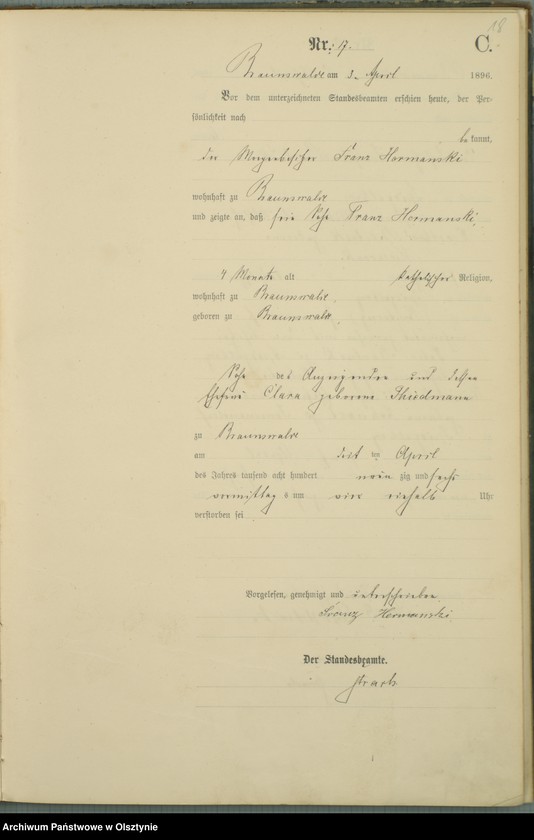 18
Nr. 17. C.
Braunswalde am 3. April 1896.
Vor dem unterzeichneten Standesbeamten erschien heute, der Per-
sönlichkeit nach
bekannt,
der Franz Hermanski
wohnhaft zu Braunswalde
und zeigte an, daß sein Sohn Franz Hermanski,
4 Monate alt katholischer Religion,
wohnhaft zu Braunswalde,
geboren zu Braunswalde,
Sohn des Anzeigenden und dessen
Ehefrau Clara geborene Thiedmann
zu Braunswalde
am ten April
des Jahres tausend acht hundert neun zig und sechs
vormittags um Uhr
verstorben sei
Vorgelesen, genehmigt und unterschrieben
Franz Hermanski
Der Standesbeamte.
Archiwum Państwowe w Olsztynie